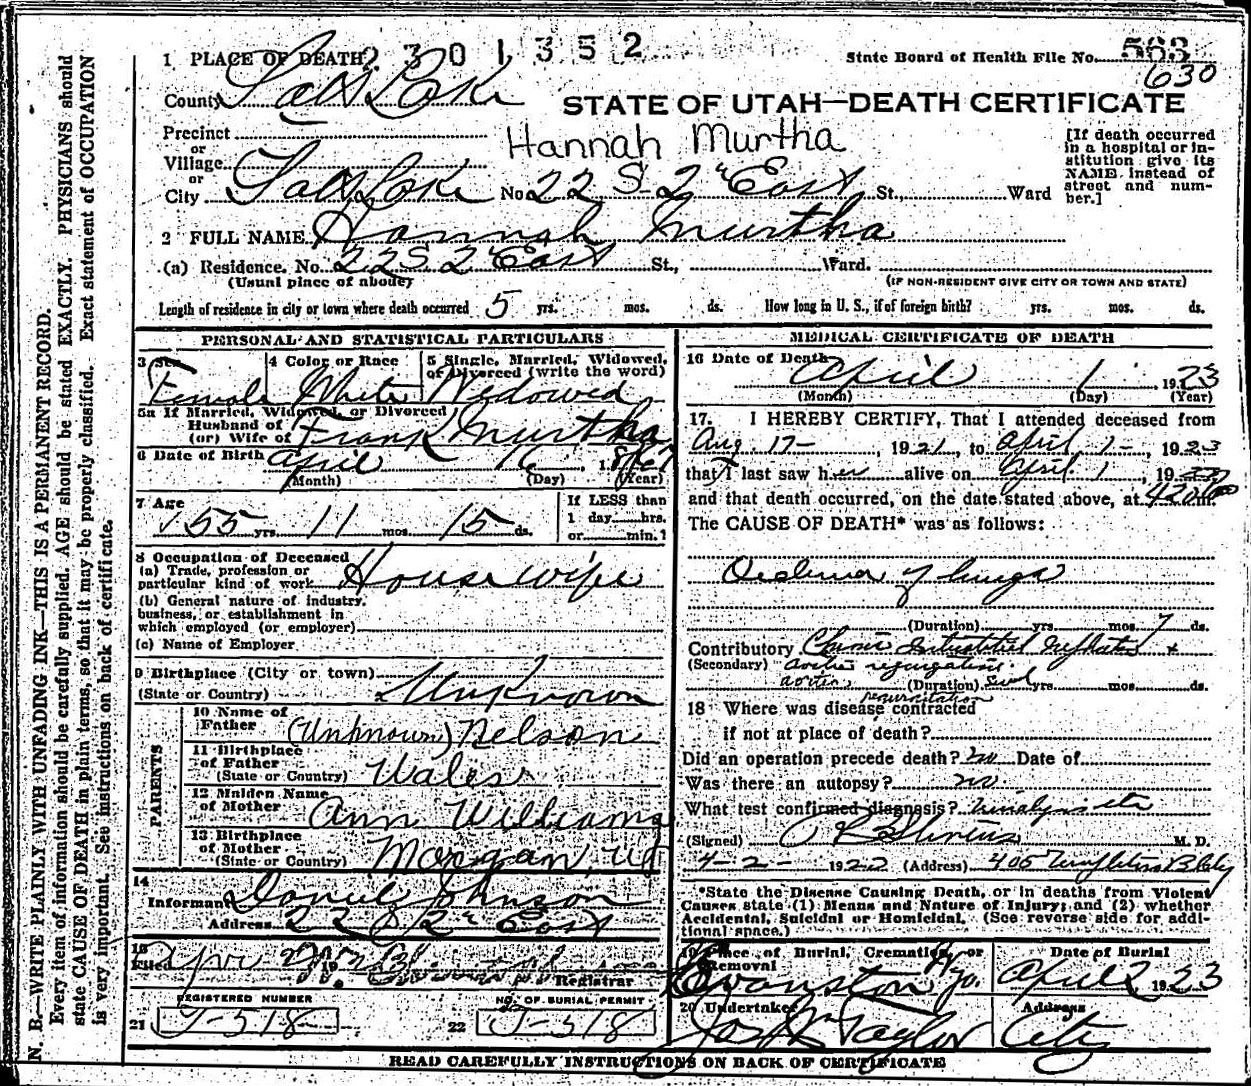 N. B.—WRITE PLAINLY WITH UNFADING INK—THIS IS A PERMANENT RECORD.
Every item of information should be carefully supplied. AGE should be stated EXACTLY. PHYSICIANS should
state CAUSE OF DEATH in plain terms, so that it may be properly classified. Exact statement of OCCUPATION
is very important. See instructions on back of certificate.
2301352
1 PLACE OF DEATH
State Board of Health File No. 563
630
County Salt Lake
STATE OF UTAH—DEATH CERTIFICATE
Precinct
Hannah Murtha
or
Village
or
City Salt Lake No. 22 S 2" East St., Ward
[If death occurred
in a hospital or in-
stitution give its
NAME instead of
street and num-
ber.]
2 FULL NAME Hannah Murtha
(a) Residence. No. 22 S. 2" East St., Ward.
(Usual place of abode)
(IF NON-RESIDENT GIVE CITY OR TOWN AND STATE)
Length of residence in city or town where death occurred 5 yrs. mos. ds. How long in U. S., if of foreign birth? yrs. mos. ds.
PERSONAL AND STATISTICAL PARTICULARS
3 Sex
Female
4 Color or Race
White
5 Single, Married, Widowed,
or Divorced (write the word)
Widowed
5a If Married, Widowed, or Divorced
Husband of
(or) Wife of Frank Murtha
6 Date of Birth April 16, 1867
(Month) (Day) (Year)
7 Age
55 yrs. 11 mos. 15 ds.
If LESS than
1 day hrs.
or min.?
8 Occupation of Deceased
(a) Trade, profession or
particular kind of work Housewife
(b) General nature of industry,
business, or establishment in
which employed (or employer)
(c) Name of Employer
9 Birthplace (City or town)
(State or Country) Unknown
PARENTS
10 Name of
Father (Unknown) Nelson
11 Birthplace
of Father
(State or Country) Wales
12 Maiden Name
of Mother Ann Williams
13 Birthplace
of Mother
(State or Country) Morgan, Ut
14
Informant Johnson
Address 22 S 2" East
15
Filed
Registrar
REGISTERED NUMBER
21 J-518
NO. OF BURIAL PERMIT
22 J-518
MEDICAL CERTIFICATE OF DEATH
16 Date of Death
April 1, 1923
(Month) (Day) (Year)
17. I HEREBY CERTIFY, That I attended deceased from
Aug. 17-, 1921, to April 1-, 1923
that I last saw her alive on April 1, 19
and that death occurred, on the date stated above, at m.
The CAUSE OF DEATH* was as follows:
Oedema of lungs
(Duration) yrs. mos. 7 ds.
Contributory Chronic Interstitial Nephritis +
(Secondary) aortic regurgitation
aortic (Duration) yrs. mos. ds.
regurgitation
18 Where was disease contracted
if not at place of death?
Did an operation precede death? no Date of
Was there an autopsy? no
What test confirmed diagnosis? Urinalysis etc
(Signed) Stevens M. D.
4-2-1922 (Address) 405 Templeton B City
*State the Disease Causing Death, or in deaths from Violent
Causes state (1) Means and Nature of Injury; and (2) whether
Accidental, Suicidal or Homicidal. (See reverse side for addi-
tional space.)
19 Place of Burial, Cremation, or
Removal
Evanston Wyo.
Date of Burial
April 2, 1923
20 Undertaker
Jos Wm Taylor
Address
City
READ CAREFULLY INSTRUCTIONS ON BACK OF CERTIFICATE